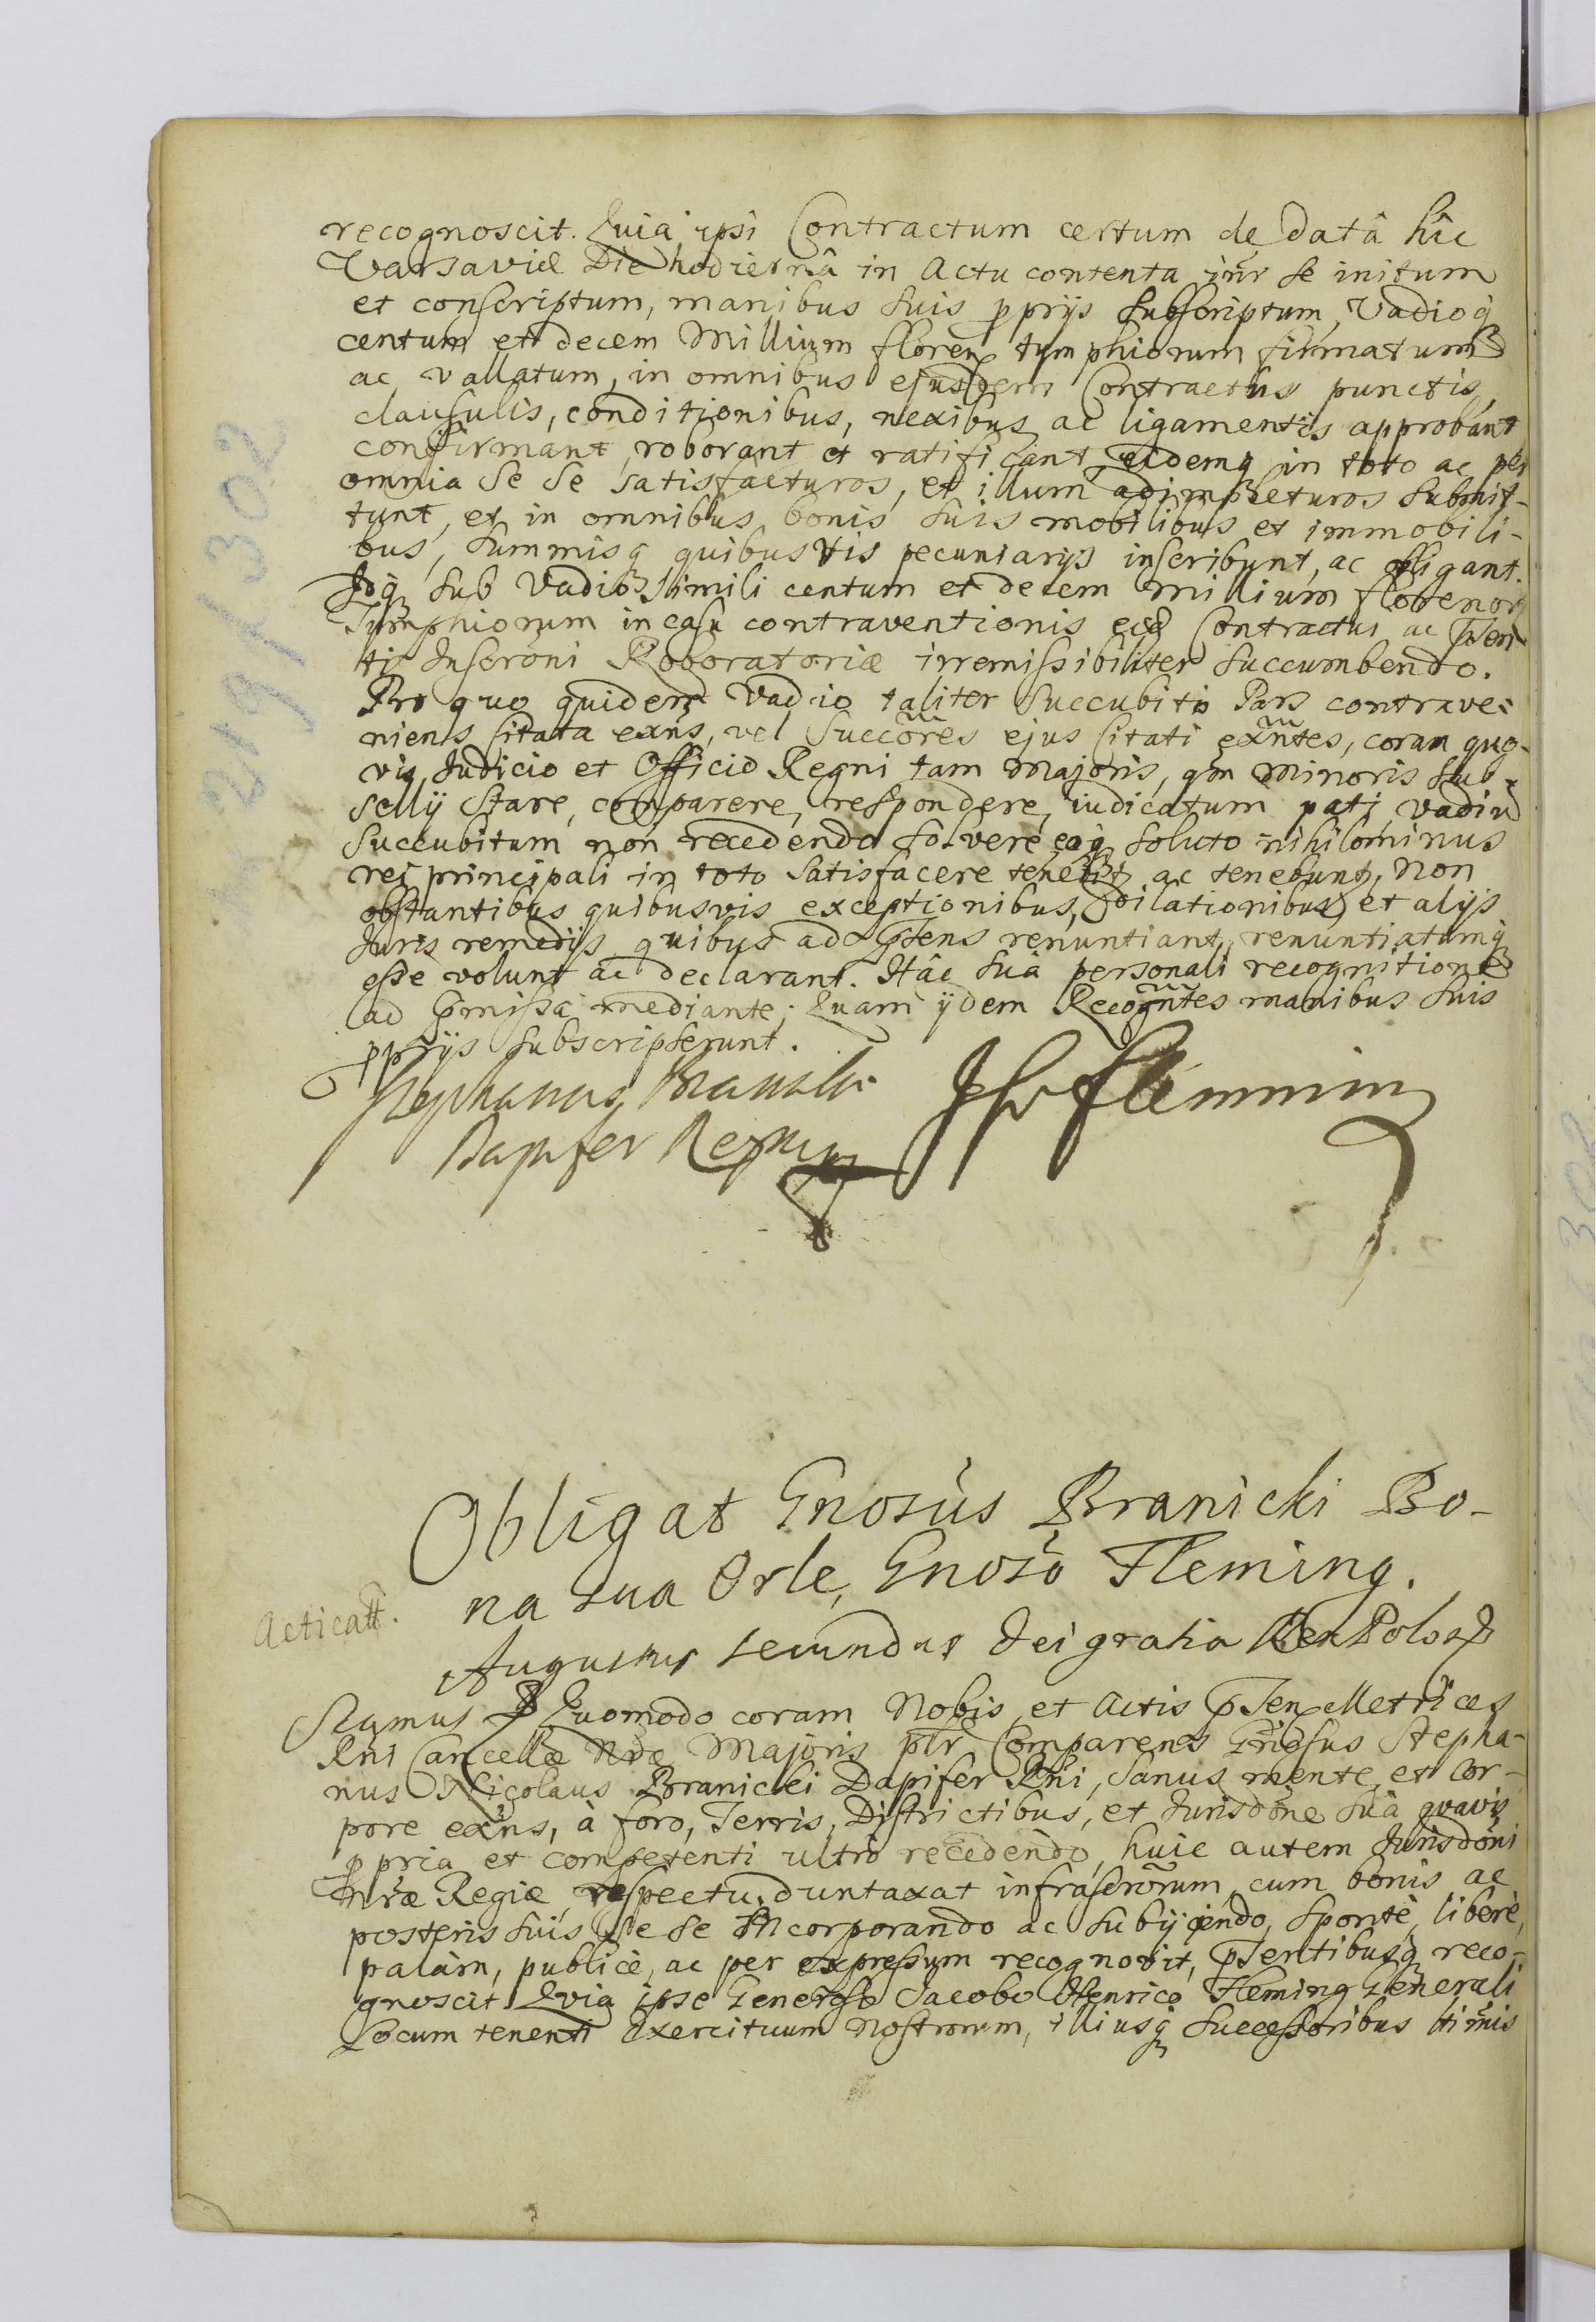 recognoscit. Quia ipsi Contractum certum de datâ hîc
Varsaviæ Die hodiernâ in Actu contenta inr̃ se initum
et conscriptum, manibus suis ppriis subscriptum, Vadioq
centum et decem Millium floren tymphiorum firmatum
ac vallatum, in omnibus ejusdem Contractus punctis,
clausulis, conditionibus, nexibus ac ligamentis approbant
confirmant, roborant et ratificant eidemq in toto ac per
omnia se se satisfacturos, et illum adimpleturos submit-
tunt, et in omnibus bonis suis mobilibus et immobili-
bus, summisq quibusvis pecuniarijs inscribunt, ac obligant.
Idq sub Vadio simili centum et decem millium florenor
Tymphiorum in casu contraventionis ejsd Contractus ac p̃sen-
tis Inscr̃oni Roboratoriæ irremissibiliter succumbendo.
Pro quo quidem Vadio taliter succubito Pars contrave-
niens citata exñs, vel Succõres ejus citati exñtes, coram quo-
vis Judicio et Officio Regni tam Majoris, qm Minoris sub-
sellij stare, comparere, respondere, iudicatum pati, vadiũ
succubitum non recedendo solvere eoq soluto nihilominus
rei principali in toto satisfacere tenebit ac tenebunt, Non
obstantibus quibusvis exceptionibus, dilationibus et alijs
Juris remedijs quibus ad p̃sens renuntiant, renuntiatumq
esse volunt ac declarant. Hâc suâ personali recognitione
ad p̃missa mediante; Quam ijdem Recogñtes manibus suis
pprijs subscripserunt.
Stephanus Branicki JH v Flemming
Dapifer Regni
Obligat Gnosus Branicki Bo-
na sua Orle, Gnoso Fleming.
Acticatt.
Augustus secundus Dei gratia Rex Polor
Sigmus Quomodo coram Nobis et Actis p̃sen Metrices
Rni Cancellæ Nræ Majoris plr̃ Comparens Gñosus Stepha-
nus Nicolaus Branicki Dapifer Rñi, sanus mente, et Cor-
pore exñs, à foro, Terris, Districtibus, et Jurisdõne suâ quavis
ppria et competenti ultro recedendo, huic autem Jurisdõni
Nræ Regiæ, respectu duntaxat infrascr̃orum cum bonis ac
posteris suis se se incorporando ac subijciendo, sponte, libere,
palam, publicè, ac per expressum recognovit, p̃sentibusq reco-
gnoscit Quia ipse Generoso Jacobo Henrico Fleming Generali
Locum tenenti Exercituum Nostrorum, illiusq Successoribus ltimis